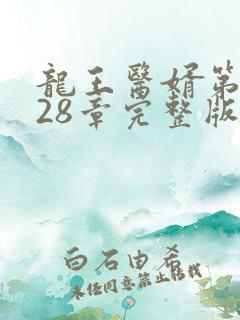 龍王醫婿第
28章完整版
白石由希
未經同意禁止轉載